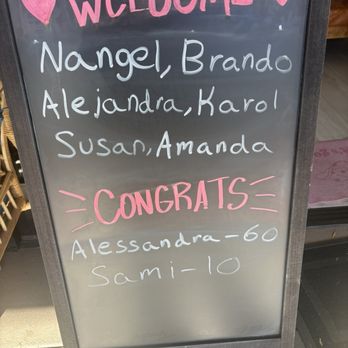 WELCOME
Nangel, Brando
Alejandra, Karol
Susan, Amanda
CONGRATS
Alessandra-60
Sami-10